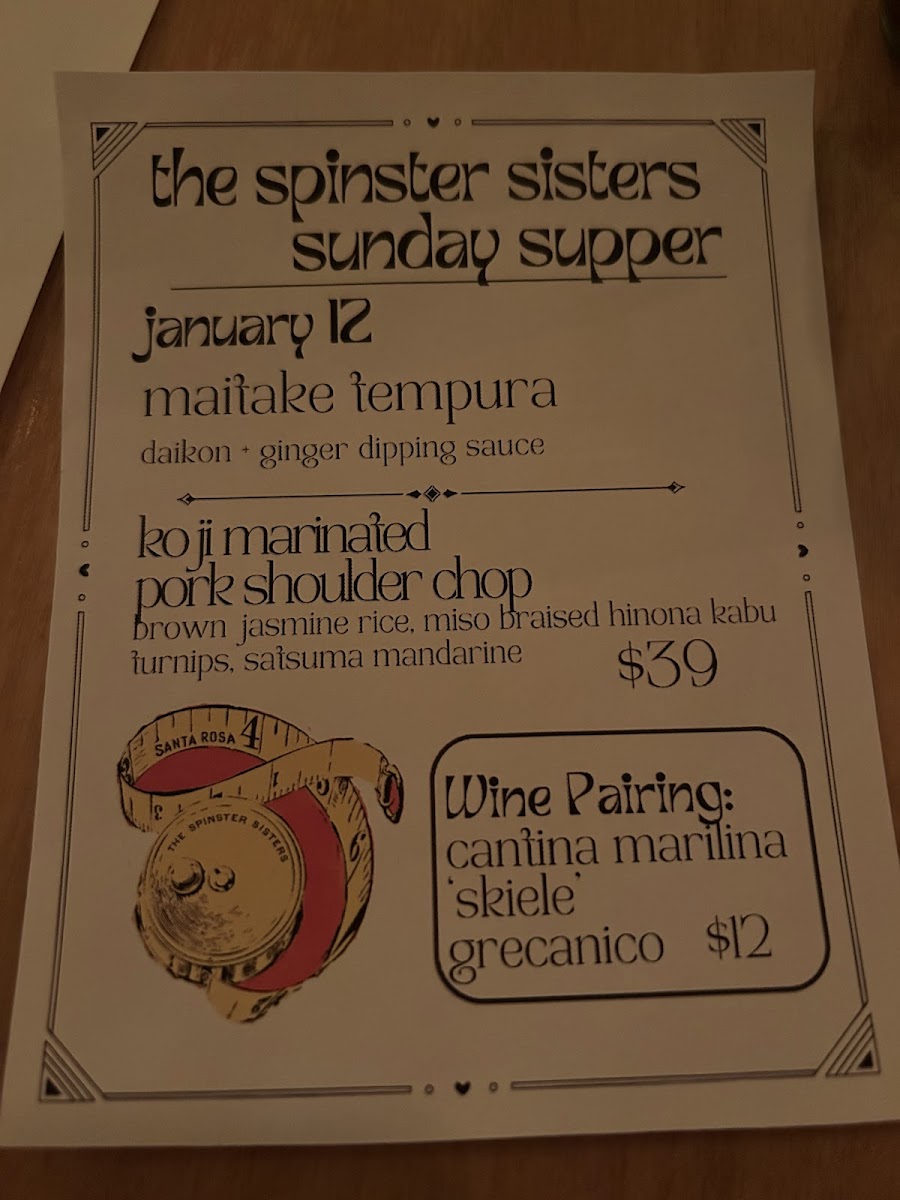 the spinster sisters
sunday supper
january 12
maitake tempura
daikon + ginger dipping sauce
koji marinated
pork shoulder chop
brown jasmine rice, miso braised hinona kabu
turnips, satsuma mandarine
$39
SANTA ROSA 4
THE SPINSTER SISTERS
Wine Pairing:
cantina marilina
'skiele'
grecanico $12